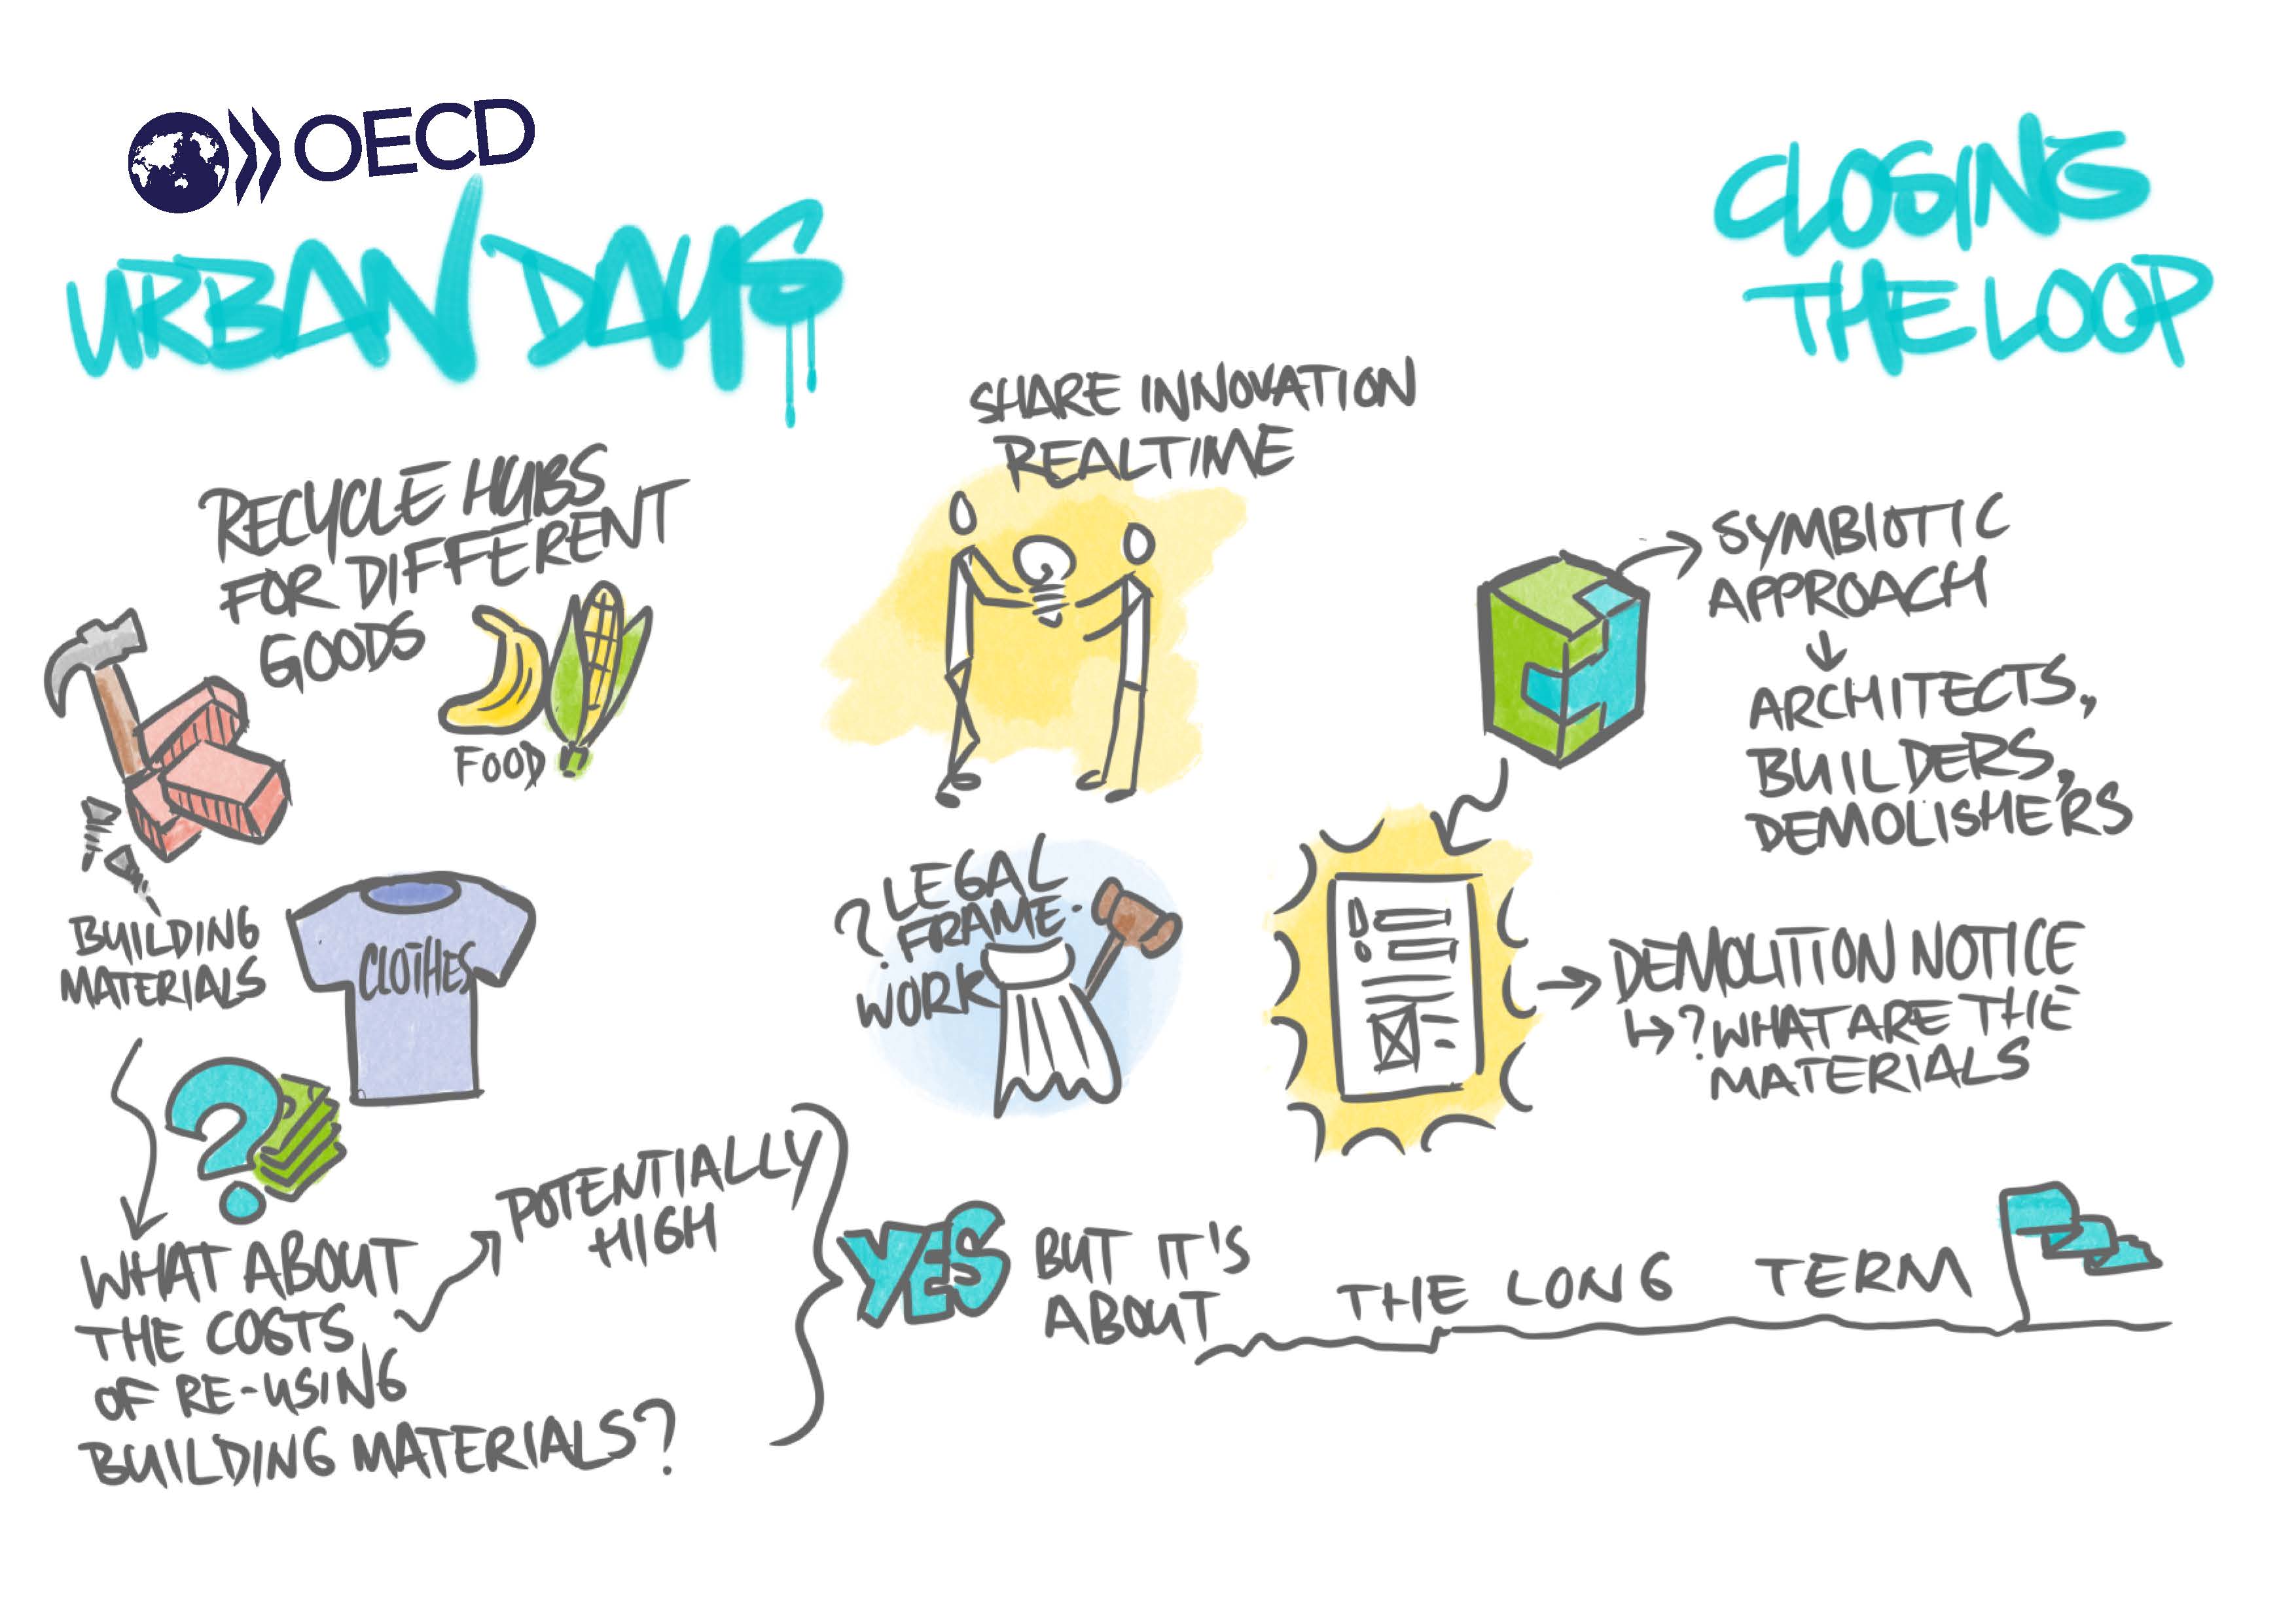 OECD
URBAN DAYS
CLOSING
THE LOOP
RECYCLE HUBS
FOR DIFFERENT
GOODS
FOOD
BUILDING
MATERIALS
CLOTHES
WHAT ABOUT
THE COSTS
OF RE-USING
BUILDING MATERIALS?
POTENTIALLY
HIGH
SHARE INNOVATION
REALTIME
? LEGAL
FRAME-
WORK
SYMBIOTIC
APPROACH
ARCHITECTS,
BUILDERS,
DEMOLISHERS
DEMOLITION NOTICE
? WHAT ARE THE
MATERIALS
YES
BUT IT'S
ABOUT
THE LONG TERM